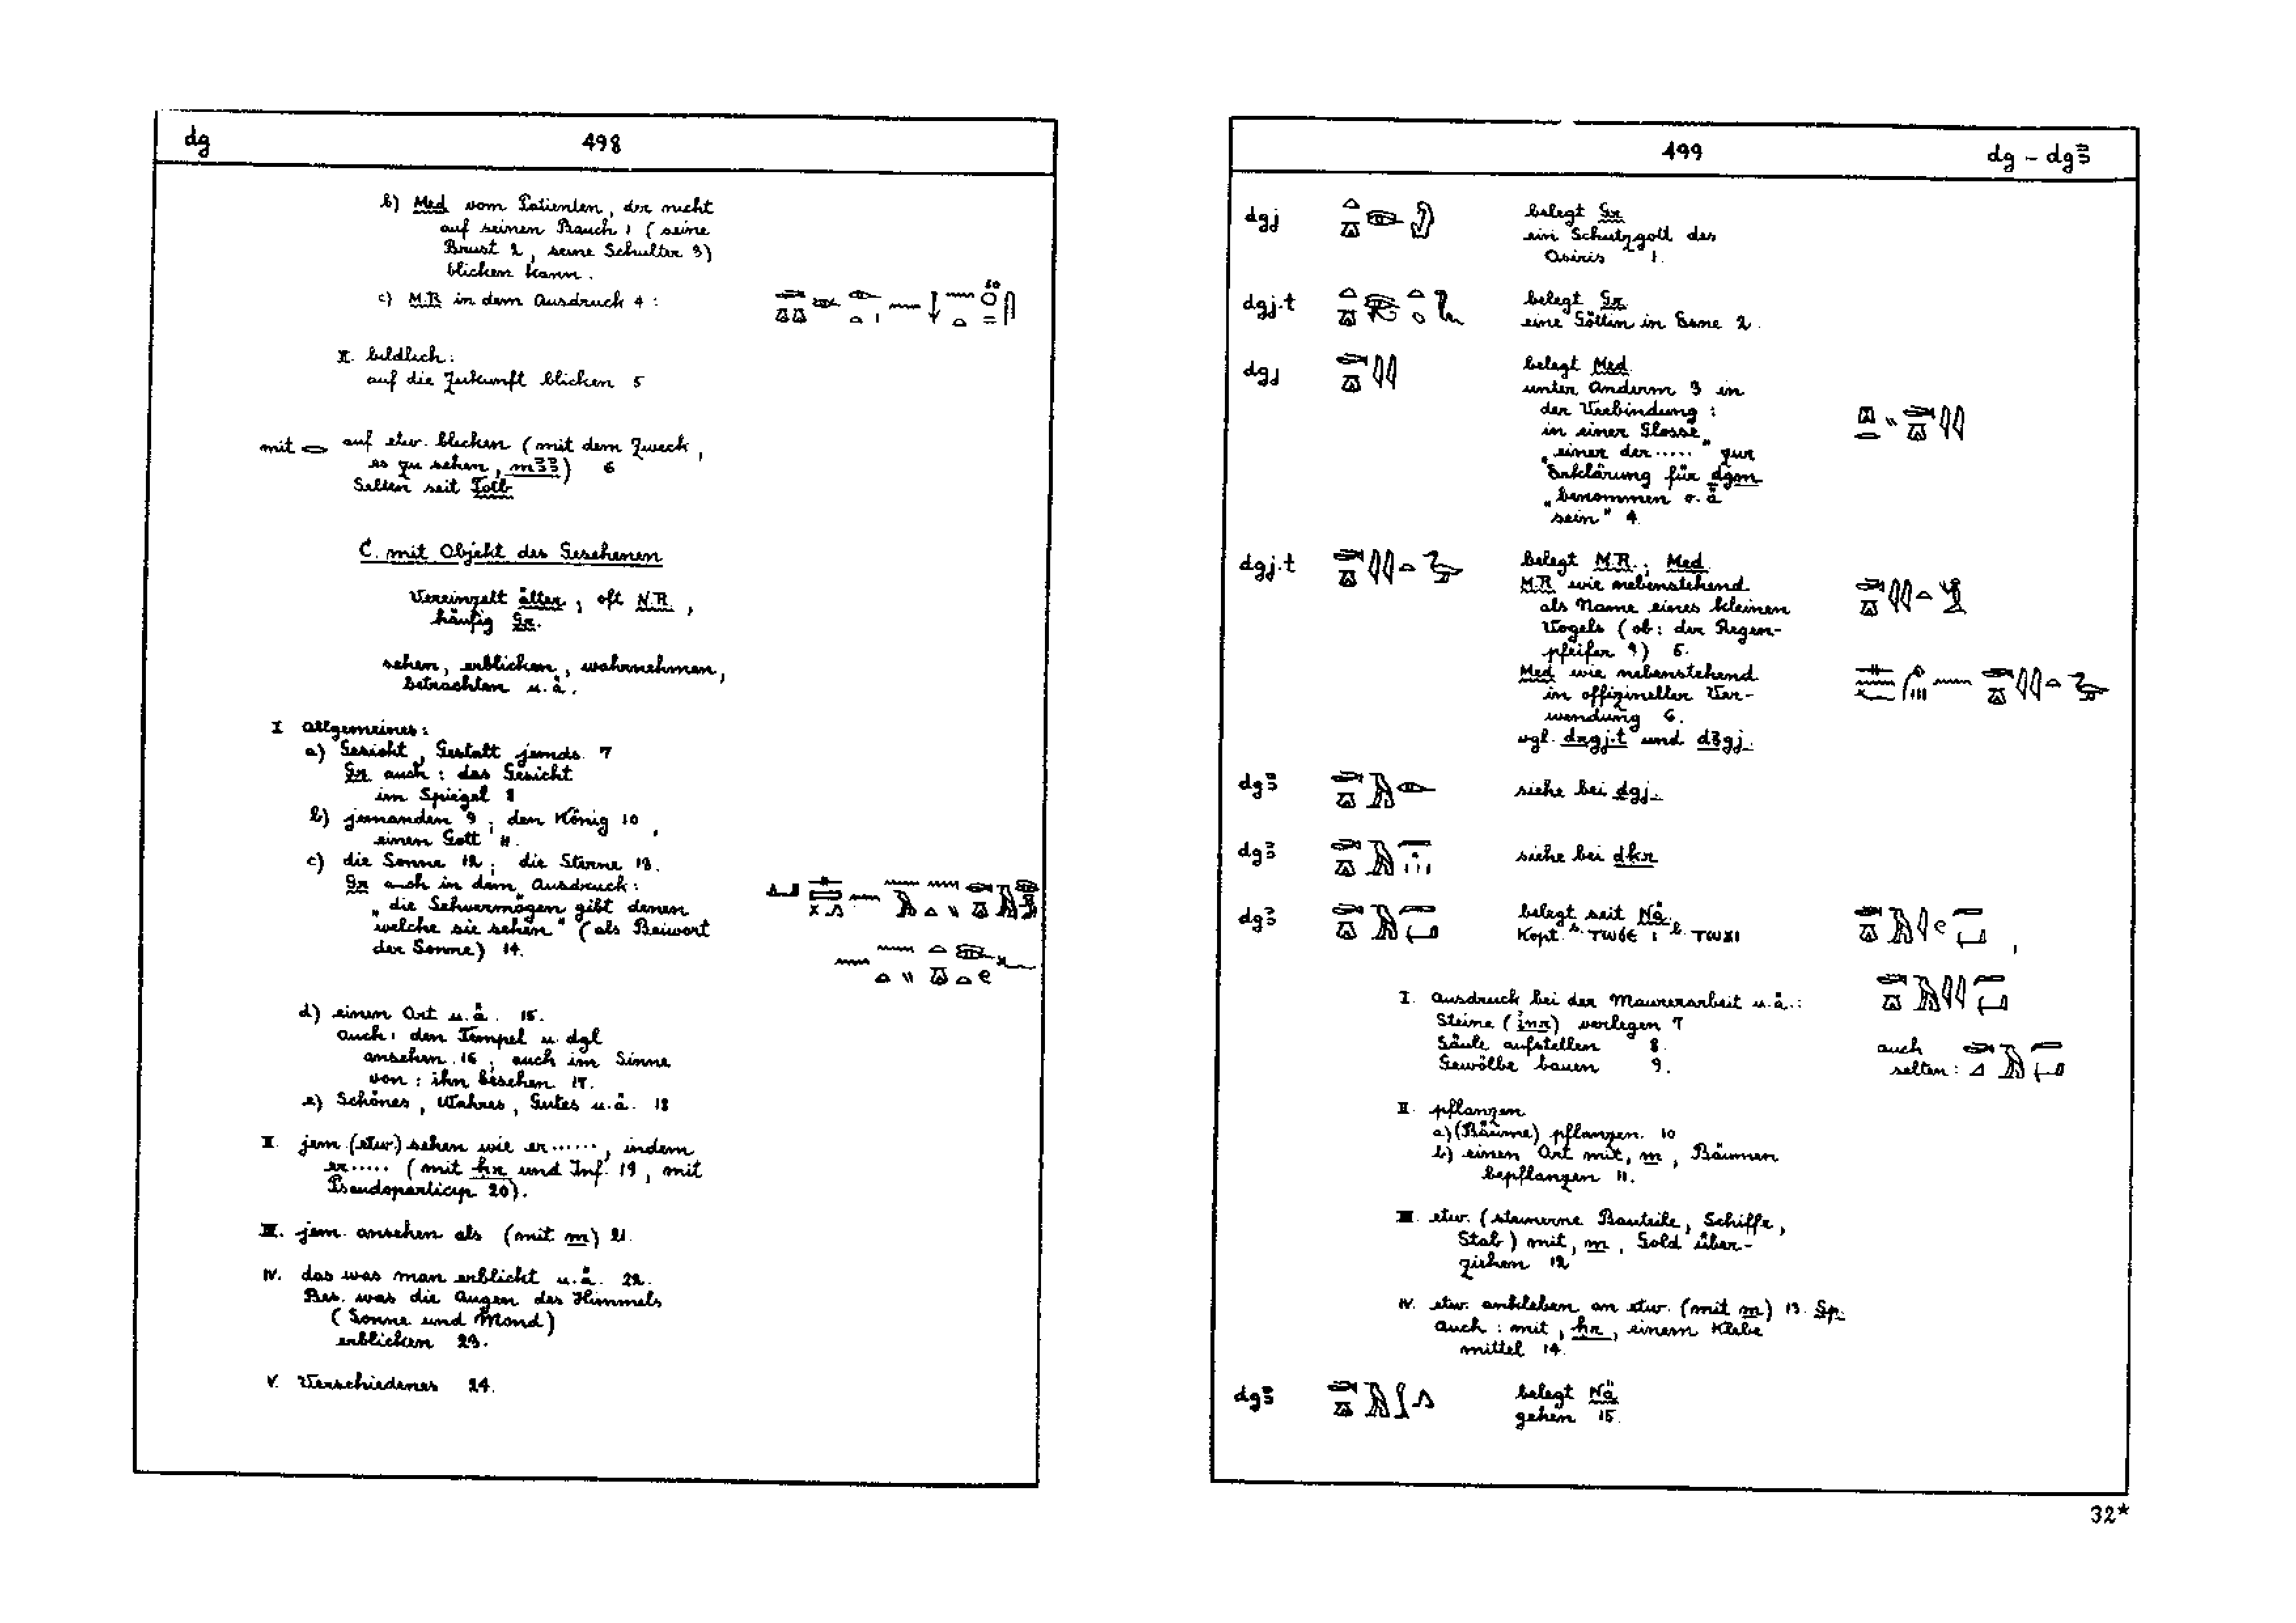 dg 498
b) Med vom Patienten, der nicht
auf seinen Bauch 1 (seine
Brust 2, seine Schulter 3)
blicken kann.
c) M.R. in dem Ausdruck 4 :
II. bildlich:
auf die Zukunft blicken 5
mit 𓂋 auf etw. blicken (mit dem Zweck,
es zu sehen, mꜣꜣ) 6
Selten seit Totb
C. mit Objekt des Gesehenen
Vereinzelt älter, oft N.R.,
häufig Gr.
sehen, erblicken, wahrnehmen,
betrachten u.ä.
I allgemeines:
a) Gesicht, Gestalt jemds. 7
Gr. auch: das Gesicht
im Spiegel 8
b) jemanden 9; den König 10,
einen Gott 11.
c) die Sonne 12; die Sterne 13.
Gr auch in dem Ausdruck:
„die Sehvermögen gibt denen
welche sie sehen" (als Beiwort
der Sonne) 14.
d) einen Ort u.ä. 15.
auch: den Tempel u. dgl
ansehen 16; auch im Sinne
von: ihn besehen 17.
e) Schönes, Wahres, Gutes u.ä. 18
II. jem. (etw.) sehen wie er ......, indem
er ..... (mit ḥr und Inf. 19, mit
Pseudoparticip 20).
III. jem. ansehen als (mit m) 21.
IV. das was man erblickt u.ä. 22.
Bes. was die Augen des Himmels
(Sonne und Mond)
erblicken 23.
V. Verschiedenes 24.
499 dg - dgꜣ
dgj belegt Gr.
ein Schutzgott des
Osiris 1.
dgj.t belegt Gr.
eine Göttin in Esne 2.
dgj belegt Med.
unter Anderm 3 in
der Verbindung:
in einer Glosse
„einer der ....." zur
Erklärung für dgm
„benommen o.ä
sein" 4.
dgj.t belegt M.R.; Med.
M.R. wie nebenstehend
als Name eines kleinen
Vogels (ob: der Regen-
pfeifer ?) 5.
Med. wie nebenstehend
in offizineller Ver-
wendung 6.
vgl. drgj.t und dꜣgj.
dgꜣ siehe bei dgj.
dgꜣ siehe bei dkr
dgꜣ belegt seit Nä.
Kopt. S. ⲧⲱϭⲉ ; B. ⲧⲱϫⲓ
I. Ausdruck bei der Maurerarbeit u.ä.:
Steine (inr) verlegen 7
Säule aufstellen 8.
Gewölbe bauen 9.
auch
selten:
II. pflanzen
a) (Bäume) pflanzen. 10
b) einen Ort mit, m, Bäumen
bepflanzen 11.
III. etw. (steinerne Bauteile, Schiffe,
Stab) mit, m, Gold über-
ziehen 12
IV. etw. ankleben an etw. (mit m) 13. Sp.
Auch: mit, ḥr, einem Klebe
mittel 14.
dgꜣ belegt Nä
gehen 15.
32*